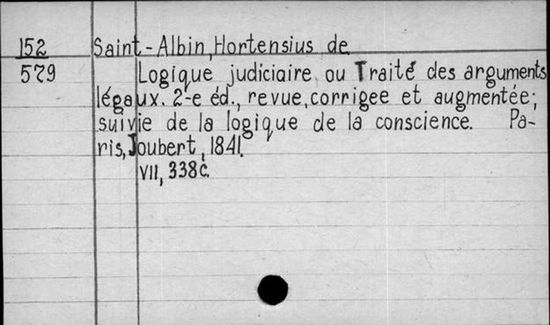 152 Saint-Albin, Hortensius de
579 Logique judiciaire ou Traité des arguments
légaux. 2-e éd., revue, corrigee et augmentée;
suivie de la logique de la conscience. Pa-
ris, Joubert, 1841.
VII, 338c.